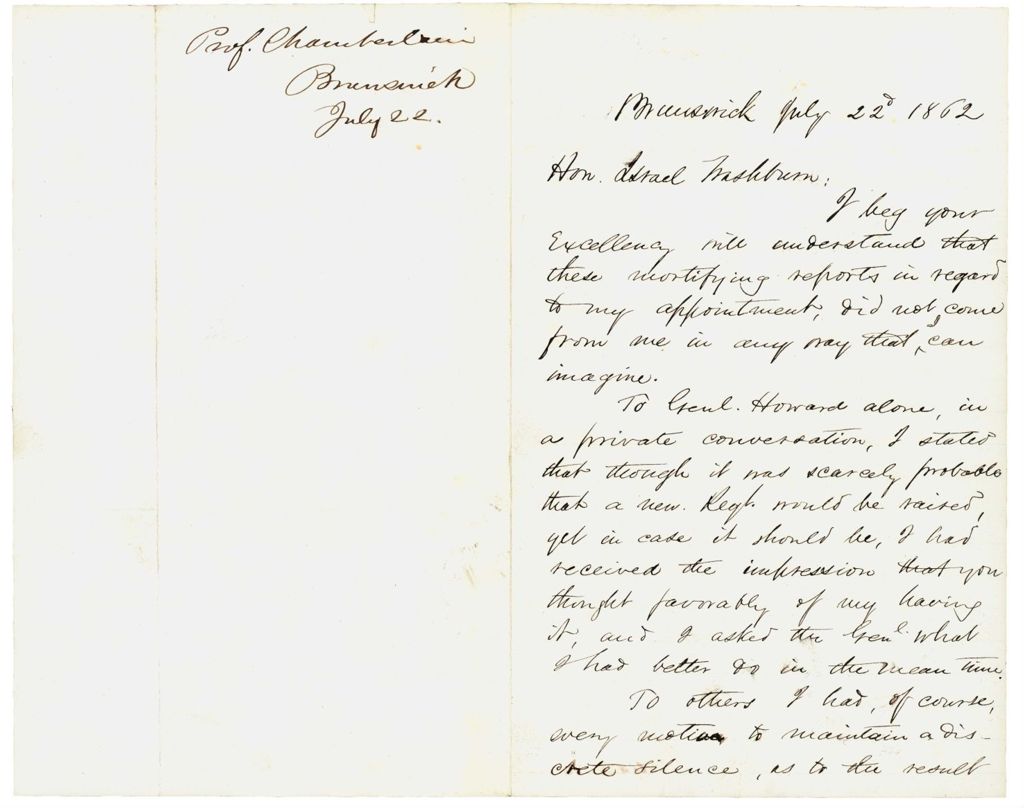 Prof. Chamberlain
Brunswick
July 22.
Brunswick July 22d 1862
Hon. Israel Washburn:
I beg your
Excellency will understand that
these mortifying reports in regard
to my appointment, did not come
from me in any way that I can
imagine.
To Genl. Howard alone, in
a private conversation, I stated
that though it was scarcely probable
that a new Regt. would be raised,
yet in case it should be, I had
received the impression that you
thought favorably of my having
it, and I asked the Genl. what
I had better do in the mean time.
To others I had, of course,
every motive to maintain a dis-
crete silence, as to the result